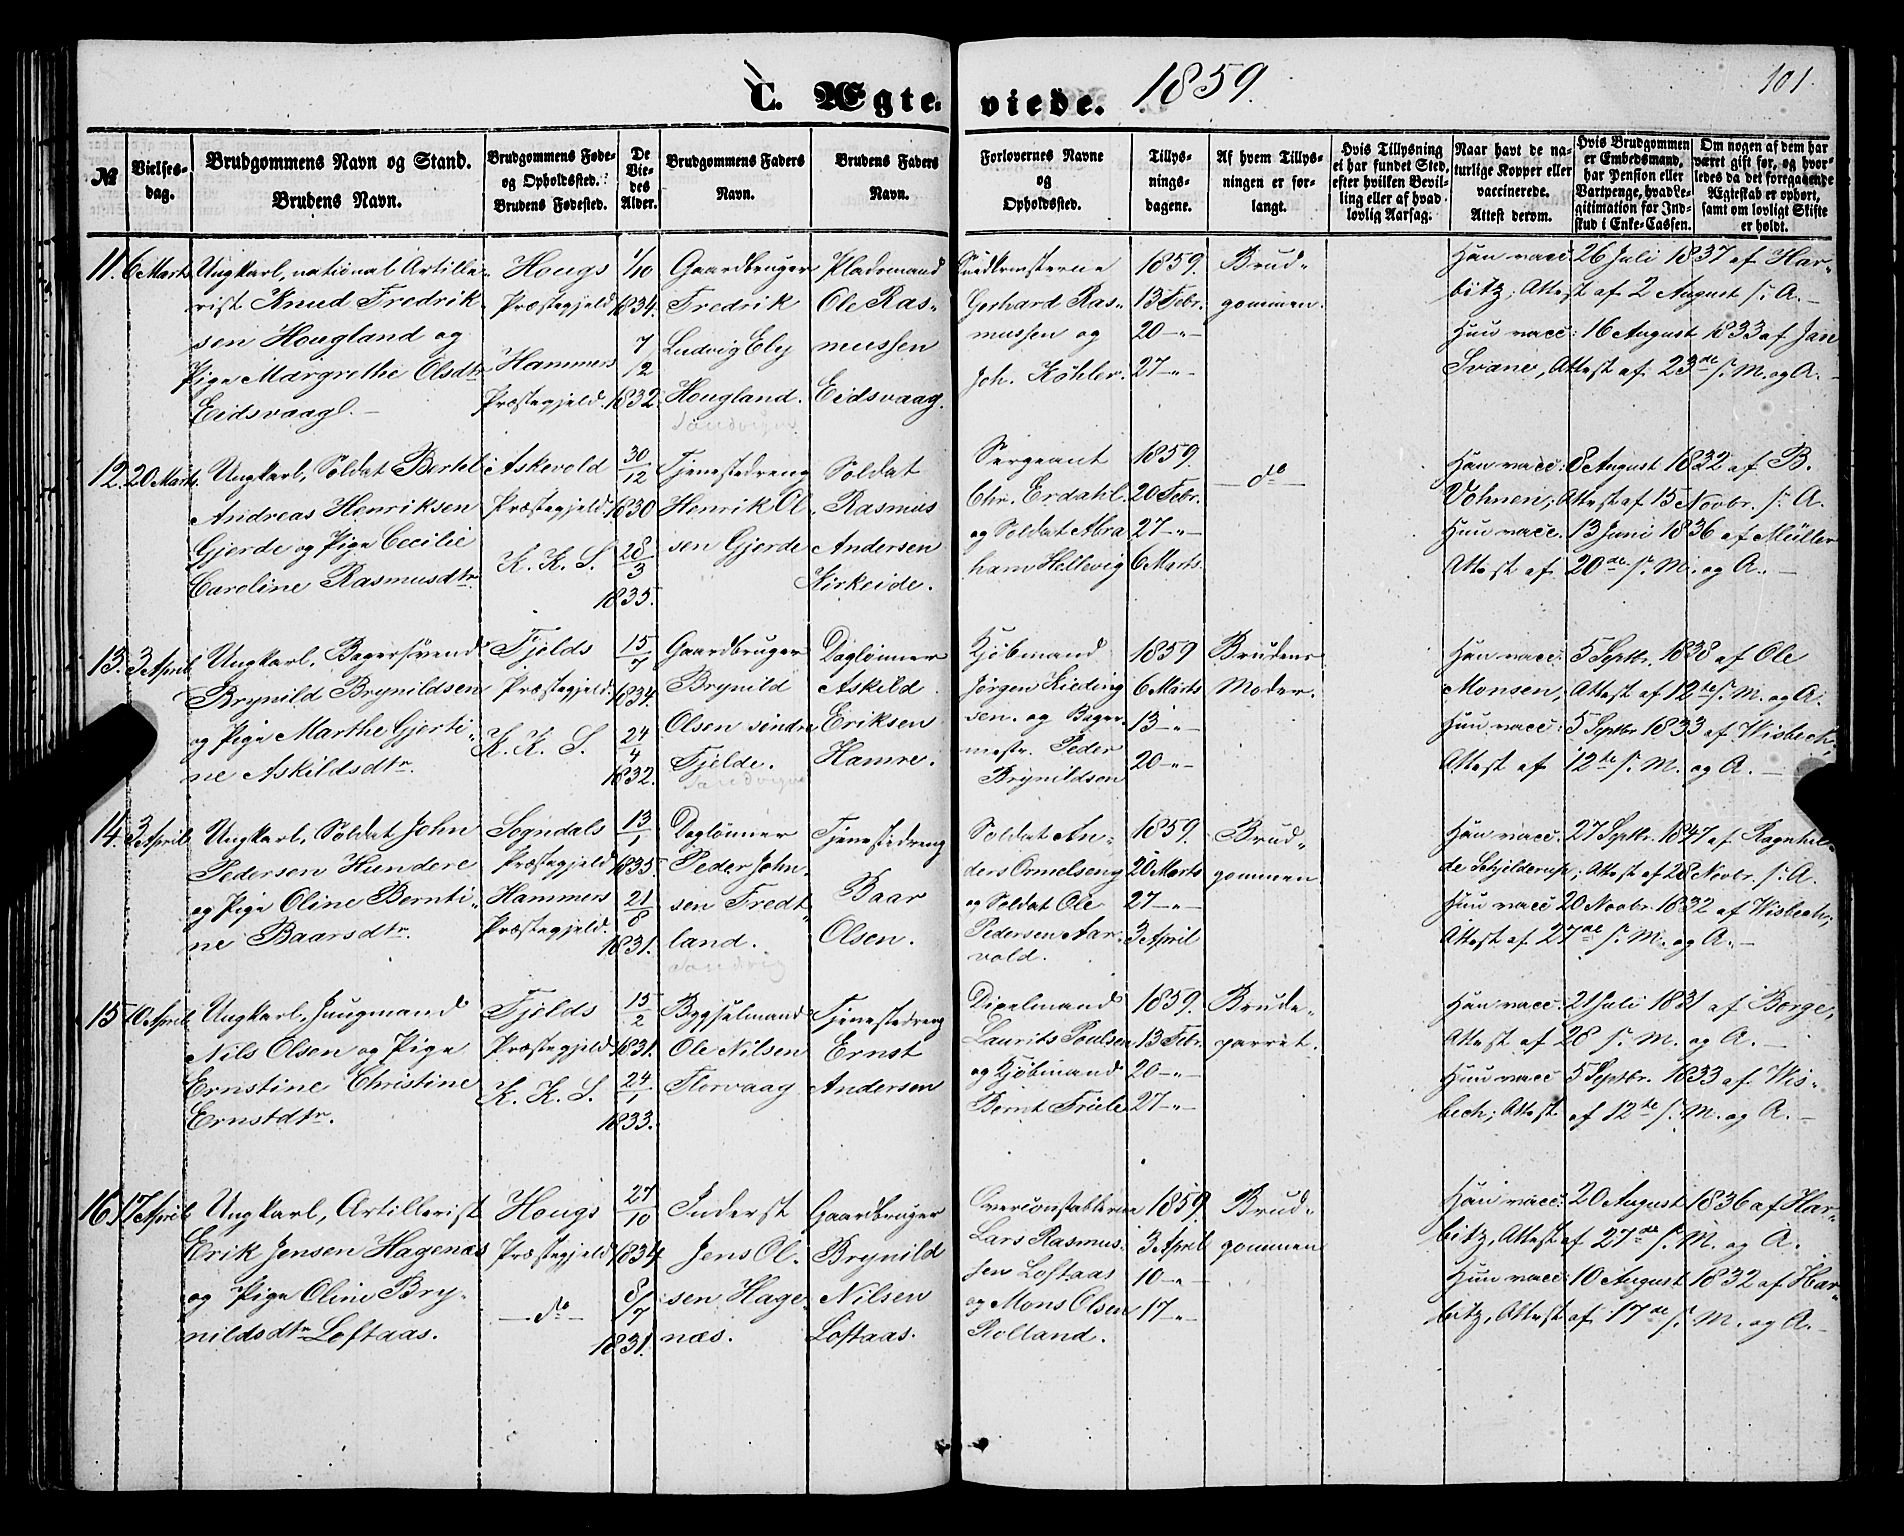 C. Ægte viede. 1859.
101.
№
Vielses-
dag.
Brudgommens Navn og Stand.
Brudens Navn.
Brudgommens Føde-
og Opholdssted.
Brudens Fødested.
De
Vie-
des
Alder.
Brudgommens Faders
Navn.
Brudens Faders
Navn.
Forlovernes Navne
og
Opholdssted.
Tillys-
nings-
dagene.
Af hvem Tillys-
ningen er for-
langt.
Hvis Tillysning
ei har fundet Sted,
efter hvilken Bevil-
ling eller af hvad
lovlig Aarsag.
Naar havt de na-
turlige Kopper eller
vaccinerede.
Attest derom.
Hvis Brudgommen
er Embedsmand,
har Pension eller
Vartpenge, hvad Le-
gitimation for Ind-
skud i Enke-Cassen.
Om nogen af dem har
været gift før, og hvor-
ledes da det foregaaende
Ægteskab er ophørt,
samt om lovligt Skifte
er holdt.
11.
6 Marts
Ungkarl, national Artille-
rist Knud Fredrik-
sen Hougland og
Pige Margrethe Olsdtr
Eidsvaagl. –
Hougs
Præstegjeld.
Hammers
Præstegjeld.
1/10
1834.
7/2
1832.
Gaardbruger
Fredrik
Ludvig Eby
Hougland.
Sandvigen
Pladsmand
Ole Ras-
mussen
Eidsvaag.
Gerhard Ras-
mussen og
Joh. Köhler.
1859.
13 Febr.
20 –"–
27 –"–
Brud-
gommen.
Han vacc: 26 Juli 1837 af Har-
bitz; Attest af 2 August s. A. –
Hun vacc: 16 August 1833 af Jan
Svane, Attest af 23de s. M. og A. –
12.
20 Marts.
Ungkarl, Soldat Bertel
Andreas Henriksen
Gjerde og Pige Cecilie
Caroline Rasmusdtr
Askevold
Præstegjeld.
K. K. S.
30/12
1830
28/3
1835.
Tjenestedreng
Henrik Ol-
sen Gjerde
Soldat
Rasmus
Andersen
Kirkeide.
Sergeant
Chr. Erdahl.
og Soldat Abra
ham Hellevig
1859.
20 Febr.
27 –"–
6 Marts.
– do –
Han vacc: 8 August 1832 af B.
Vohnen; Attest af 15 Novbr. s. A.
Hun vacc. 13 Juni 1836 af Müller
Attest af 20de s. M. og A. –
13.
3 April
Ungkarl, Bagersvend
Brynild Brynildsen
og Pige Marthe Gjerti-
ne Askildsdtr.
Fjelds
Præstegjeld.
K. K. S.
15/7
1834.
24/4
1832.
Gaardbruger
Brynild
Olsen søndre
Fjelde.
Sandvigen
Daglønner
Askild
Eriksen
Hamre.
Kjøbmand
Jørgen Kieding
sen. og Bager-
mestr. Peder
Brynildsen
1859
6 Marts
13 –"–
20 –"–
Brudens
Moder.
Han vacc: 5 Septbr. 1838 af Ole
Monsen, Attest af 12te s. M. og A.
Hun vacc: 5 Septbr 1833 af Wisbech,
Attest af 12te s. M. og A. –
14.
3 April
Ungkarl, Soldat John
Pedersen Hundere
og Pige Oline Bernti-
ne Baarsdtr.
Sogndals
Præstegjeld
Hammers
Præstegjeld.
13/1
1835.
21/8
1831.
Daglønner
Peder John-
sen Fredt-
land.
Sandvig
Tjenestedreng
Baar
Olsen.
Soldat An-
ders Ormelseng
og Soldat Ole
Pedersen Aar-
vold.
1859.
20 Marts
27 –"–
3 April
Brud-
gommen
Han vacc: 27 Septbr. 1847 af Ragnhil-
de Schjelderup; Attest af 28 Novbr. s. A.
Hun vacc 20 Novbr. 1832 af Wisbech;
Attest af 27de s. M. og A. –
15
10 April
Ungkarl, Jungmand
Nils Olsen og Pige
Ernstine Christine
Ernstdtr.
Fjelds
Præstegjeld
K. K. S.
15/2
1831.
24/1
1833.
Bygselmand
Ole Nilsen
Florvaag
Tjenestedreng
Ernst
Andersen
Dixelmand
Laurits Poulsen
og Kjøbmand
Bernt Friele
1859.
13 Febr.
20 –"–
27 –"–
Brude-
parret.
Han vacc: 21 Juli 1831 af Borge,
Attest af 28 s. M. og A. –
Hun vacc 5 Septbr. 1833 af Wis-
bech; Attest af 12te s. M. og A. –
16
17 April
Ungkarl, Artillerist
Erik Jensen Hagenæs
og Pige Oline Bry-
nildsdtr Loftaas.
Hougs
Præstegjeld
– do –
27/10
1834
8/7
1831.
Inderst
Jens Ol-
sen Hage-
næs.
Gaardbruger
Brynild
Nilsen
Loftaas.
Overconstablerne
Lars Rasmus-
sen Loftaas
og Mons Olsen
Rolland.
1859.
3 April
10 –"–
17 –"–
Brud-
gommen
Han vacc: 20 August 1836 af Har-
bitz, Attest af 27de s. M. og A.
Hun vacc: 10 August 1832 af Har-
bitz, Attest af 17de s. M. og A. –